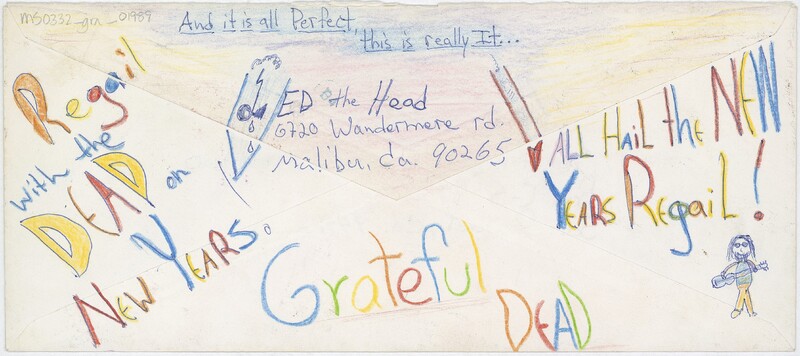 ms0332_gn_01989
And it is all Perfect,
this is really It...
ED the Head
6720 Wandermere rd.
Malibu, Ca. 90265
Regail
with the
DEAD on
NEW YEARS.
ALL HAIL the NEW
YEARS REgaiL!
Grateful
DEAD